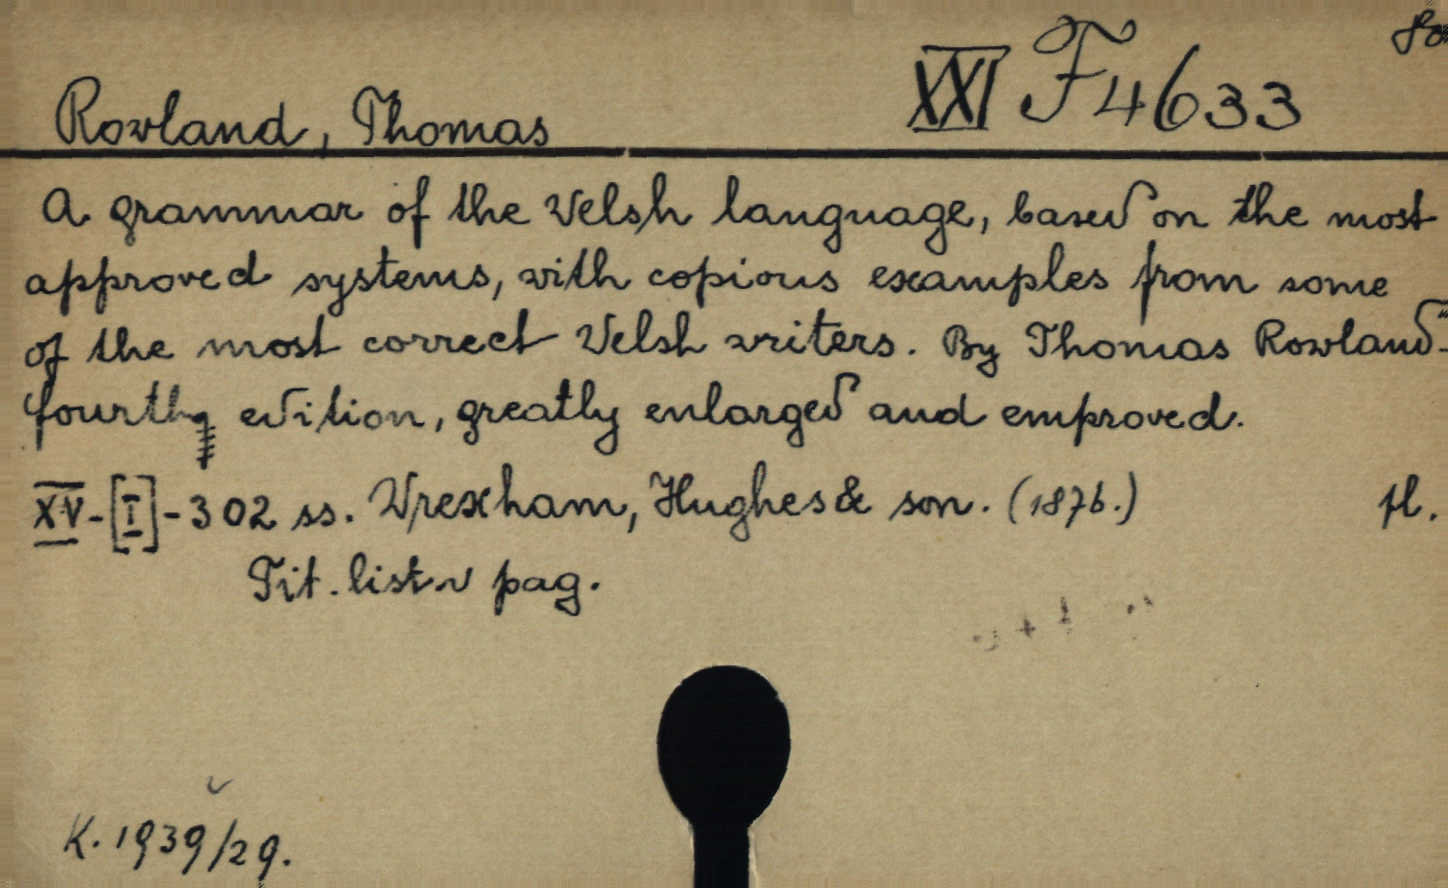 8o
XXI F4633
Rowland, Thomas
A grammar of the Welsh language, based on the most
approved systems, with copious examples from some
of the most correct Welsh writers. By Thomas Rowland-
fourth edition, greatly enlarged and emproved.
XV-[I]-302 ss. Wrexham, Hughes & son. (1876.) pl.
Tit. list. v pag.
K. 1939/29.